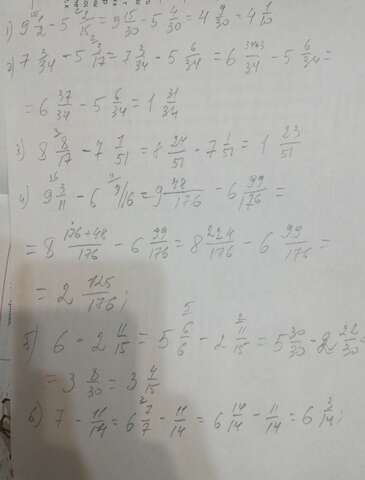 1) 9 1/2 - 5 2/15 = 9 15/30 - 5 4/30 = 4 9/30 = 4
2) 7 3/34 - 5 3/17 = 7 3/34 - 5 6/34 = 6 34+3/34 - 5 6/34 =
= 6 37/34 - 5 6/34 = 1 31/34
3) 8 8/17 - 7 1/51 = 8 24/51 - 7 1/51 = 1 23/51
4) 9 3/11 - 6 9/16 = 9 48/176 - 6 99/176 =
= 8 176+48/176 - 6 99/176 = 8 224/176 - 6 99/176 =
= 2 125/176;
5) 6 - 2 11/15 = 5 6/6 - 2 11/15 = 5 30/30 - 2 22/30
= 3 8/30 = 3 4/15
6) 7 - 11/14 = 6 7/7 - 11/14 = 6 14/14 - 11/14 = 6 3/14;